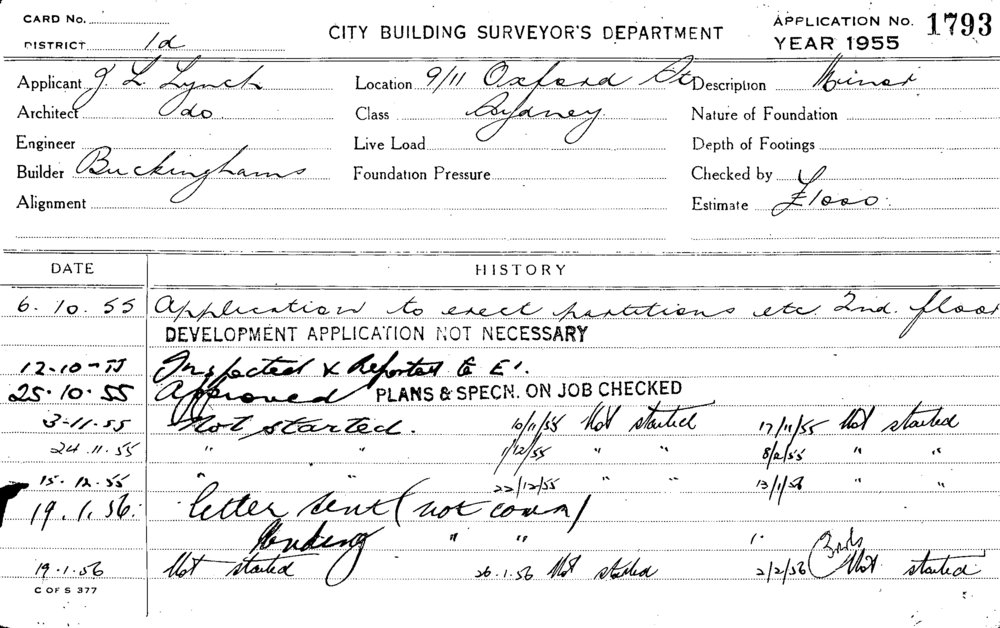 CARD No.
DISTRICT 1d
CITY BUILDING SURVEYOR'S DEPARTMENT
APPLICATION No. 1793
YEAR 1955
Applicant J. L. Lynch
Location 9/11 Oxford St
Description Minor
Architect do
Class Sydney
Nature of Foundation
Engineer
Live Load
Depth of Footings
Builder Buckinghams
Foundation Pressure
Checked by
Alignment
Estimate £1000
DATE HISTORY
6.10.55 Application to erect partitions etc 2nd. floor
DEVELOPMENT APPLICATION NOT NECESSARY
12-10-55 Inspected & Reported to E1.
25.10.55 Approved PLANS & SPECN. ON JOB CHECKED
3-11-55 Not started. 10/11/55 Not started 17/11/55 Not started
24.11.55 " " 1/12/55 " " 8/12/55 " "
15.12.55 " " 22/12/55 " " 13/1/56 " "
19.1.56. letter sent (not comm)
Pending " " "
19.1.56 Not started 26.1.56 Not started 2/2/56 Not started
C OF S 377